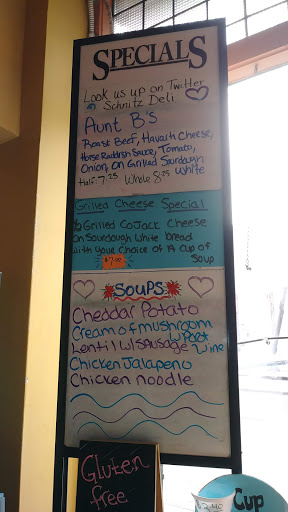 SPECIALS
Look us up on Twitter
Schnitz Deli
Aunt B's
Roast Beef, Havarti Cheese,
Horse Raddish Sauce, Tomato,
Onion, on Grilled Sourdough
Half: 7.25 Whole 8.25 White
Grilled Cheese Special
1/2 Grilled CoJack Cheese
on Sourdough White bread
with your choice of A cup of
$7.00 Soup
SOUPS
Cheddar Potato
Cream of mushroom
w/Port
Lentil w/ Sausage Wine
Chicken Jalapeno
Chicken noodle
Gluten
free
Cup